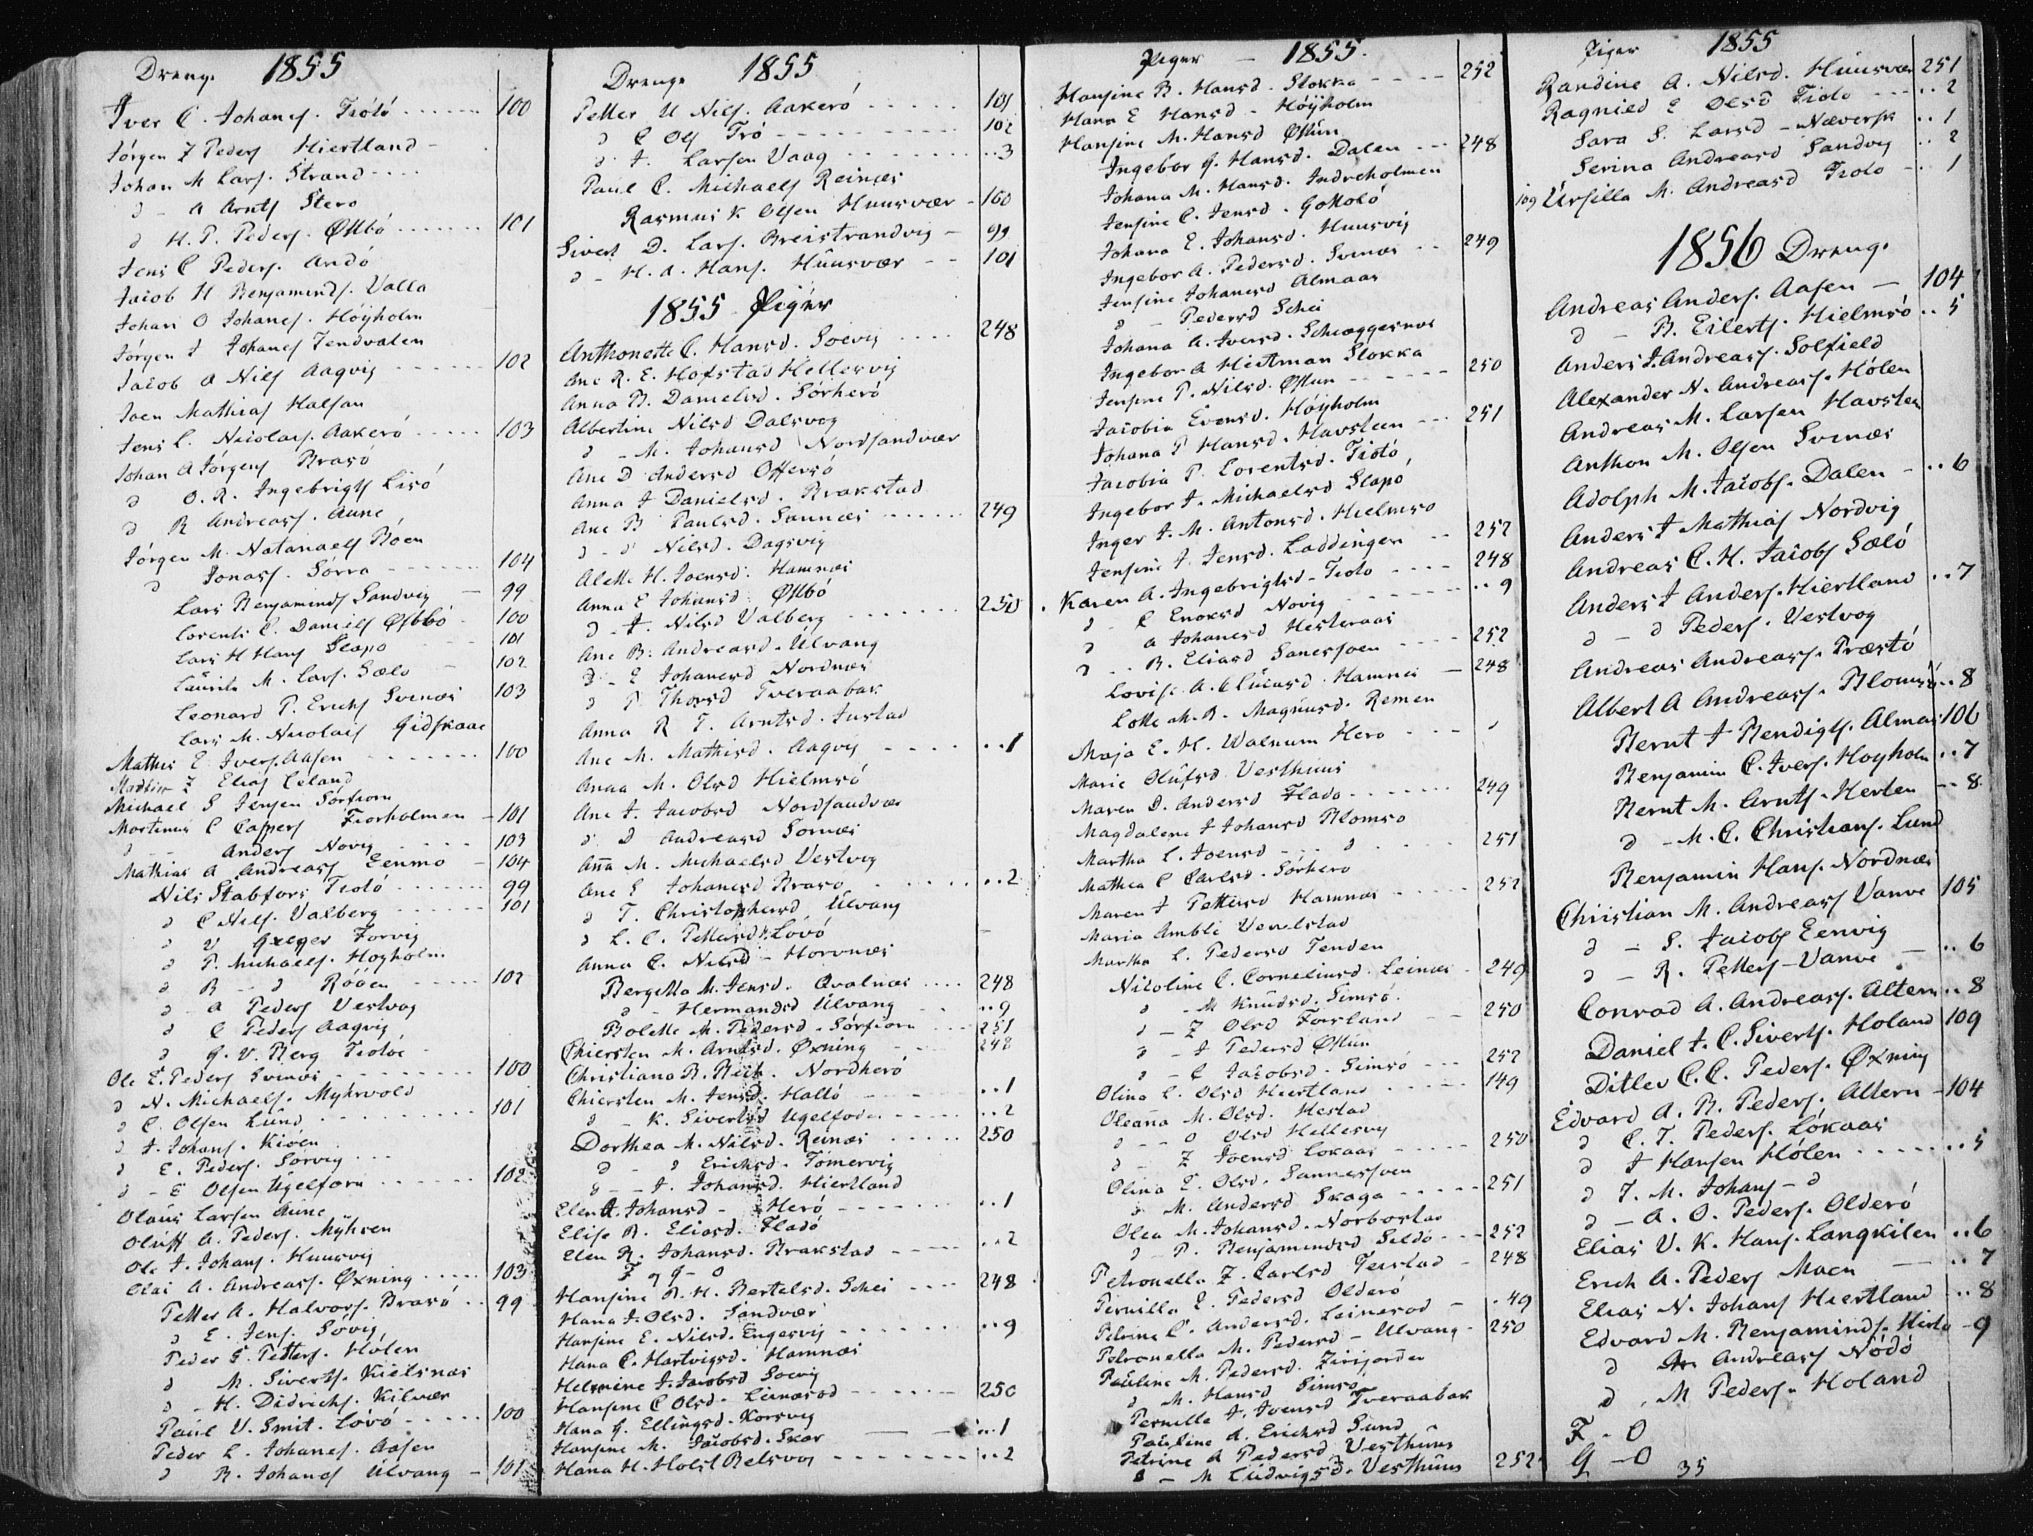 Drenge 1855
Iver C. Johanes. Tiötö 100
Jörgen Z Peders Hiertland
Johan M Lars. Strand
d - A Arnts Stero
d H. P. Peders. Östbö 101
Jens C Peders. Andö
Jacob H Benjamins. Valla
Johan O Johanes. Höyholm
Jörgen J Johanes Tendvalen
Jacob A Nils Aagvig 102
Joen Mathias Halsan
Jens L. Nicolais. Aakerö 103
Johan A Jörgens Brasö
d O. R. Ingebrigts Lisö
d R Andreas. Aune
Jörgen M. Natanaels Röen
d Jonas. Sörra 104
Lars Benjamins Sandvig 99
Lorents C. Daniels Östbö 100
Lars H Hans Slapö 101
Laurits M. Lars. Sælö 102
Leonard P. Erichs Svines 103
Lars M. Nicolais Gidskaae
Mathis E Ivers. Aasen 100
Mathias Z Elias Leland
Michael S Jensen Sörfiorn
Mortinus C Caspers Fiorholmen 101
d - Anders Novig 103
Mathias A Andreas Eenmo 104
Nils Stabfors Tiotö 99
d C Nils. Valberg 101
d V Greger Forvig
d P. Michaels. Höyholm
d B - d Rööen 102
d - A Peders Vestvog
d C Peders Aagvig
d G. V. Berg Tiotöe
Ole E. Peders Svinæs 100
d N. Michaels. Myhrvold
d C. Olsen Lund 101
d J. Johans. Kiöen
d E. Peders. Sörvig
d - E Olsen Ugelforn 102
Olaus Larsen Aune
Oluff A. Peders. Myhren
Ole J. Johans. Huusvig
Olai A. Andreas. Öxning 103
Petter A. Halvors. Brasö 99
d E. Jens. Sövig
Peder P. Petters. Hólen
d M. Siverts. Kielsnæs
d - H. Didrichs. Kilvær
Paul V. Smit. Lövö 100
Peder L. Johanes. Aasen
d R. Johanes Ulvang 101
Drenge 1855
Petter U Nils. Aakerö 101
d C Ols Trö 102
d J. Larsen Vaag ..3
Paul C. Michaels Reinæs
Rasmus K Olsen Huusvær 100
Sivert D. Lars. Breistrandvig 99
d - H. A. Hans. Huusvær 101
1855 Piger
Anthonette C. Hansd. Soevig 248
Ane R. E. Hofstad Hellesvig
Anna B. Danielsd. Sörherö
Albertine Nilsd Dalsvog
d - M. Johansd Nordsandvær
Ane D Andersd Offersö
Anna J Danielsd. Brakstad
Ane B Paulsd. Sannæs 249
d - d Nilsd. Dagsvig
Alette H. Joensd. Hamnæs
Anna E Johansd. Östbö
d - J. Nilsd Valberg 250
Ane B. Andreasd. Ulvang
d - E Johanesd Nordnæs
d P Thorsd Tveraabak
Anna R T. Arntsd. Justad
Ane M. Mathisd. Aagvig ..1
Anna M. Olsd Hielmsö
Ane J. Jacobsd Nordsandvær
d d Andreasd Sornæs
Anna M. Michaelsd Vestvig
Ane E Johanesd Brasö ..2
d T. Christophersd Ulvang
d L. C. Pettersd. Lövö
Anna C. Nilsd - Horvnæs
Bergitta M. Jensd. Qvalnæs 248
d - Hermansd Ulvang ..9
Bolette M. Pedersd. Sörfiorn 251
Chiersten M. Arntsd. Öxning 248
Christiana B. Beck. Nordherö
Chiersten M. Jensd. Haltö ..1
d - K. Sivertsd Ugelforn ..2
Dorthea M. Nilsd. Reinæs 250
d - d Erichsd. Tömervig
d - J. Johansd. Hiertland
Elen A. Johansd - Herö ..1
Elise B. Eliasd. Fladö
Elen R. Johansd. Brakstad ..2
F og G - 0
Hansine B. H. Bertelsd. Schei 248
Hana J. Olsd. Sandvær
Hansine E. Nilsd. Engesvig ..9
Hana C. Hartvigsd. Hamnæs
Helmine J. Jacobsd Soevig
Hansine C Olsd. Leinæsod 250
Hana G. Ellingsd. Korsvig
Hansine M. Jacobsd. Skar ..1
Hana H. Holst Belsvog ..2
Piger - 1855.
Hansine B. Hansd. Stokka 252
Hana E Hansd - Höyholm
Hansine M. Hansd Östun
Ingebor G. Hansd. Dalen 248
Johana M. Hansd. Indreholmen
Jensine C. Jensd. Gottolö
Johana E. Johansd. Huusvig
Ingebor A. Pedersd. Svinæs 249
Jensine Johanesd Almaas
d - Pedersd Schei
Johana A. Iversd. Schieggesnæs
Ingebor A Heitman Stokka
Jensine P. Nilsd. Östun 250
Jacobia Evensd. Höyholm
Johana P Hansd. Havsteen 251
Jacobia P. Lorentsd. Tiötö
Ingebor J. Michaelsd Slapö
Inger J. M. Antonsd. Hielmsö
Jensine J Jensd. Laddingen 252
Karen A. Ingebrigtsd - Tiotö 248
d - C Enoksd Novig ..9
d A Johanesd Hesteraas
d B. Eliasd Sanessoen 252
Lovise A. Cluiasd. Hamnes 248
Lotte M. B. Magnusd. Remen
Maja E. H. Walnum Herö
Marie Olufsd Vesthuus
Maren D. Andersd Flado 249
Magdalena J Johansd Blomsö
Martha L. Joensd - d 251
Mathea C Carlsd. Sörherö
Maren J Pettersd Hamnæs 252
Maria Ambli Vevelstad
Martha L. Pedersd Tenden
Nicoline C. Corneliusd. Leinæs 249
d - M Knudsd. Simsö.
d - Z Olsd Forsland 250
d - J Pedersd Östun
d - C Jacobsd. Simsö 252
Olina L. Olsd Hiertland 149
Oleana M. Olsd. Hestad
d - O Olsd Hellesvig
d - Z Joensd Lökaas 250
Olina P. Olsd. Sannessoen
d M. Andersd Skaga 251
Olea M. Johansd. Norbostad
d - P. Benjaminsd Seldö 252
Petronella Z. Carlsd Teistad 248
Pernilla E. Pedersd Olderö
Petrine C. Andersd. Leinesod .49
Petronella M. Pedersd - Ulvang 250
Pauline M. Pedersd. Ziriforden
d M. Hansd Simsö
Pernilla J. Joensd Tveraabak
Pauline A. Erichsd Sund
Petrine A Pedersd Vesthuus
d - M Ludvigsd. Vesthuus 252
Piger 1855
Randine A. Nilsd. Huusvær 251
Ragnild E Olsd Tioto ..2
Sara S. Larsd - Næversk ..1
Serina Andreasd Sandvig ..2
109 Ursilla M. Andreasd Tioto ..1
1856 Drenge
Andreas Anders. Aasen 104
d - B. Eilerts. Hielmsö ..5
Anders J. Andreas. Solfield
Alexander N. Andreas. Holen
Andreas M. Larsen Havsten
Anthon M. Olsen Svinæs
Adolph M. Jacobs. Dalen ..6
Anders J Mathias Nordvig
Andreas C. H. Jacobs Sælö
Anders J Anders. Hiertland ..7
d - d Peders. Vestvog
Andreas Andreas. Præstö
Albert A Andreas. Blomsö ..8
Bernt J Bendigts. Almas 106
Benjamin C. Ivers. Hoyholm ..7
Bernt M. Arnts. Herten ..8
d - M. C. Christians. Lund
Benjamin Hans. Nordnæs
Christian M. Andreas Vanve 105
d - S. Jacobs Eenvig
d - R. Petters - Vanve ..6
Conrad A. Andreas. Altern ..8
Daniel J. C. Siverts. Holand 109
Ditlev C. C. Peders. Öxning
Edvard A. B. Peders. Altern 104
d C. T. Peders. Lökaas
d J Hansen Hölen ..5
d J. M. Johans - d
d - A. O. Peders. Olderö
Elias U. K. Hans. Langkilen ..6
Erich A. Peders Moen ..7
Elias N. Johans Hiertland ..8
Edvard M. Benjamins. Herlö ..9
d Andreas Nödö
d . M Peders. Holand
F - 0
G - 0
35